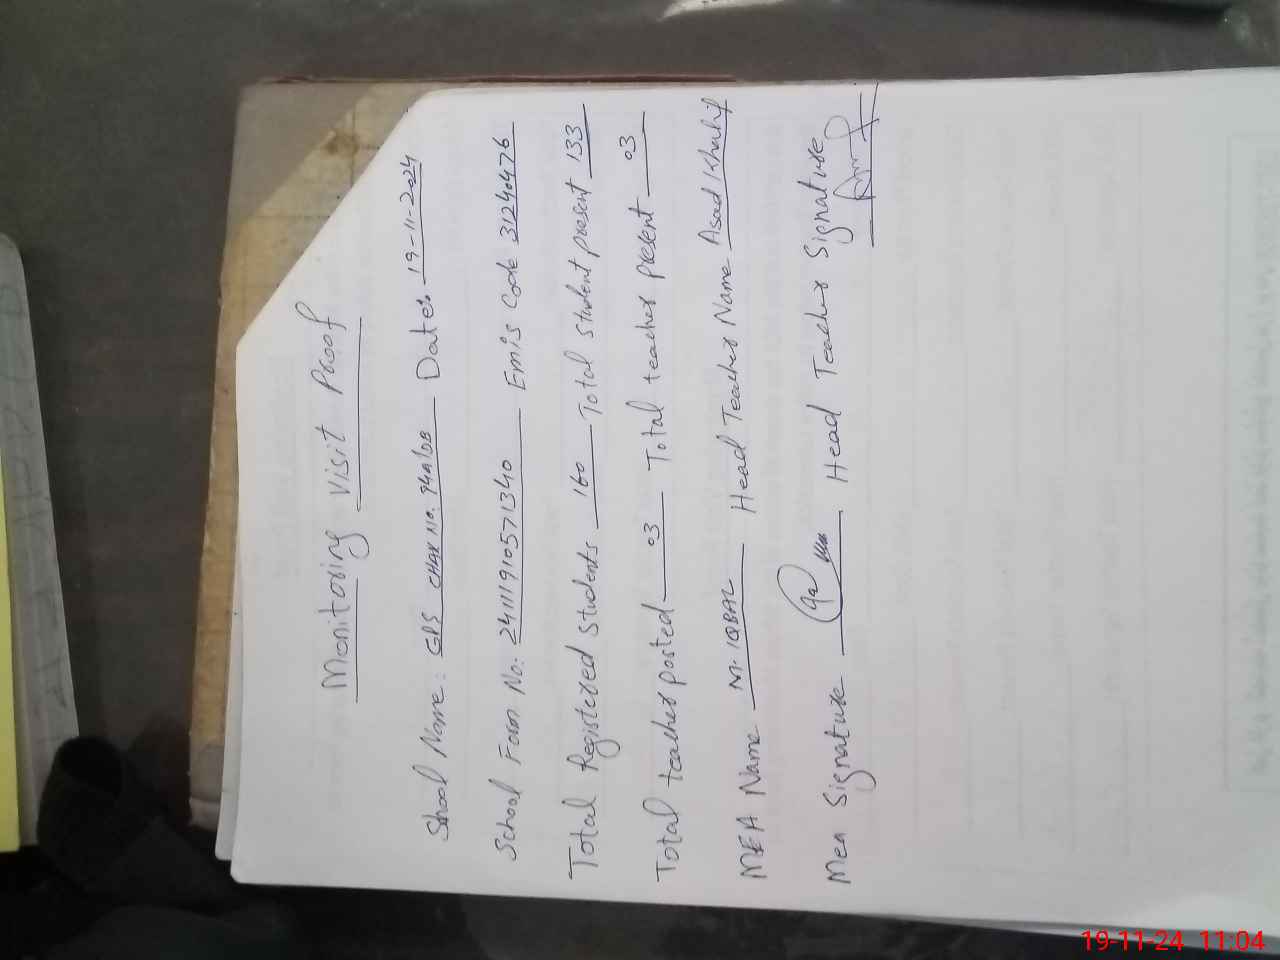 Monitoring visit Proof
School Name: GPS CHAK No. 94a/DB Date: 19-11-2024
School Form No: 24111910571340 Emis Code 31240476
Total Registered Students 160 Total student present 133
Total teacher posted 03 Total teacher present 03
MEA Name M. IQBAL Head Teacher Name Asad Khalif
Mea Signature Head Teacher Signature
19-11-24 11:04